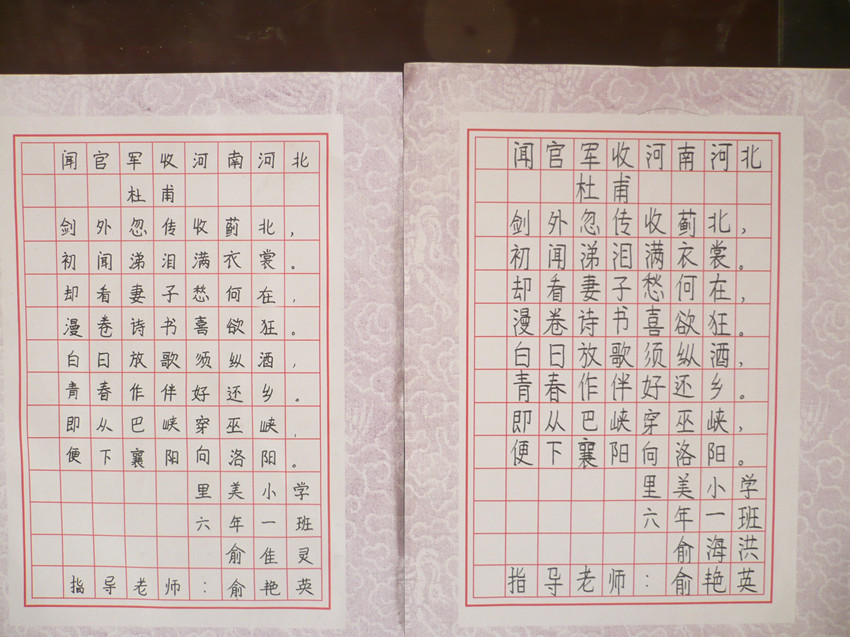 闻官军收河南河北
杜甫
剑外忽传收蓟北，
初闻涕泪满衣裳。
却看妻子愁何在，
漫卷诗书喜欲狂。
白日放歌须纵酒，
青春作伴好还乡。
即从巴峡穿巫峡，
便下襄阳向洛阳。
里美小学
六年一班
俞佳灵
指导老师：俞艳英
闻官军收河南河北
杜甫
剑外忽传收蓟北，
初闻涕泪满衣裳。
却看妻子愁何在，
漫卷诗书喜欲狂。
白日放歌须纵酒，
青春作伴好还乡。
即从巴峡穿巫峡，
便下襄阳向洛阳。
里美小学
六年一班
俞海洪
指导老师：俞艳英